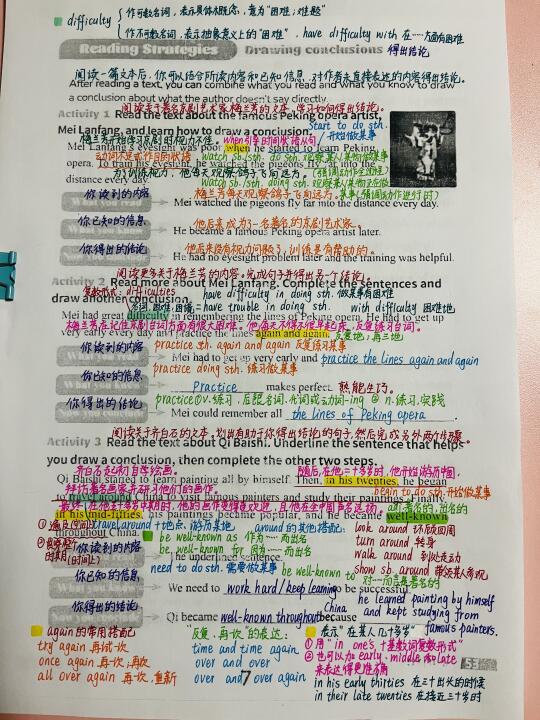 difficulty
作可数名词，表示具体概念，意为“困难；难题”
作不可数名词，表示抽象意义上的“困难”，have difficulty with 在…方面有困难
Reading Strategies Drawing conclusions 得出结论
阅读一篇文本后，你可以结合所读内容和已知信息，对作者未直接表达的内容得出结论。
After reading a text, you can combine what you read and what you know to draw
a conclusion about what the author doesn't say directly.
阅读关于著名京剧艺术家梅兰芳的文本，学习如何得出结论。
Activity 1 Read the text about the famous Peking opera artist,
Mei Lanfang, and learn how to draw a conclusion.
start to do sth. 开始做某事
梅兰芳开始学习京剧时视力不佳。 when引导时间状语从句
Mei Lanfang's eyesight was poor when he started to learn Peking
动词不定式作目的状语 watch sb./sth. do sth. 观察某人/某物做某事
opera. To train his eyesight, he watched the pigeons fly far into the
为训练视力，他每天观察鸽子飞向远方。
distance every day.
watch sb./sth. doing sth. 观察某人/某物正在做某事
梅兰芳每天观察鸽子飞向远方。
你读到的内容 Mei watched the pigeons fly far into the distance every day.
他后来成为了一名著名的京剧艺术家。
你已知的信息 He became a famous Peking opera artist later.
他后来没有视力问题了，训练是有帮助的。
你得出的结论 He had no eyesight problem later and the training was helpful.
阅读更多关于梅兰芳的内容。完成句子并得出另一个结论。
Activity 2 Read more about Mei Lanfang. Complete the sentences and
draw another conclusion.
复数形式：difficulties have difficulty in doing sth. 做某事有困难
名词，困难；困境 = have trouble in doing sth. with difficulty 困难地
Mei had great difficulty in remembering the lines of Peking opera. He had to get up
梅兰芳在记住京剧台词方面有很大困难。他每天不得不很早起床，反复练习台词。
very early every day and practice the lines again and again. 反复地；再三地
你读到的内容 practice sth. again and again 反复练习某事
Mei had to get up very early and practice the lines again and again
你已知的信息 practice doing sth. 练习做某事
Practice makes perfect. 熟能生巧。
你得出的结论 practice ① v. 练习，后跟名词、代词或动词-ing ② n. 练习，实践
Mei could remember all the lines of Peking opera.
阅读关于齐白石的文本，划出有助于你得出结论的句子，然后完成另外两个步骤。
Activity 3 Read the text about Qi Baishi. Underline the sentence that helps
you draw a conclusion, then complete the other two steps.
齐白石起初自学绘画。 随后，在他二十多岁时，他开始游历中国，
Qi Baishi started to learn painting all by himself. Then, in his twenties, he began
拜访著名画家并研习他们的画作。 begin to do sth. 开始做某事
to travel around China to visit famous painters and study their paintings. Finally,
最终，在他五十多岁中期时，他的画作变得受欢迎，且他在全中国负有盛名。 adj. 著名的，出名的
in his mid-fifties, his paintings became popular, and he became well-known
throughout China.
travel around + 地点，游历某地 around 的其他搭配：
be well-known as 作为…而出名 look around 环顾四周
be well-known for 因为…而出名 turn around 转身
你读到的内容 The underlined sentence. walk around 到处走动
need to do sth. 需要做某事 be well-known to 对…而言是著名的 show sb. around 带领某人参观
你已知的信息 We need to work hard/keep learning to be successful.
he learned painting by himself
你得出的结论 Qi became well-known throughout China because
and kept studying from
famous painters.
again 的常用搭配
try again 再试一次
once again 再一次；再次
all over again 再一次，重新
“反复，再次”的表达：
time and time again
over and over
over and over again
表示“在某人几十多岁”
① 用“in one's 十基数词复数形式”
② 也可以加 early、middle 和 late
来表达得更准确
in his early thirties 在三十出头的时候
in their late twenties 在接近三十岁时
7
53